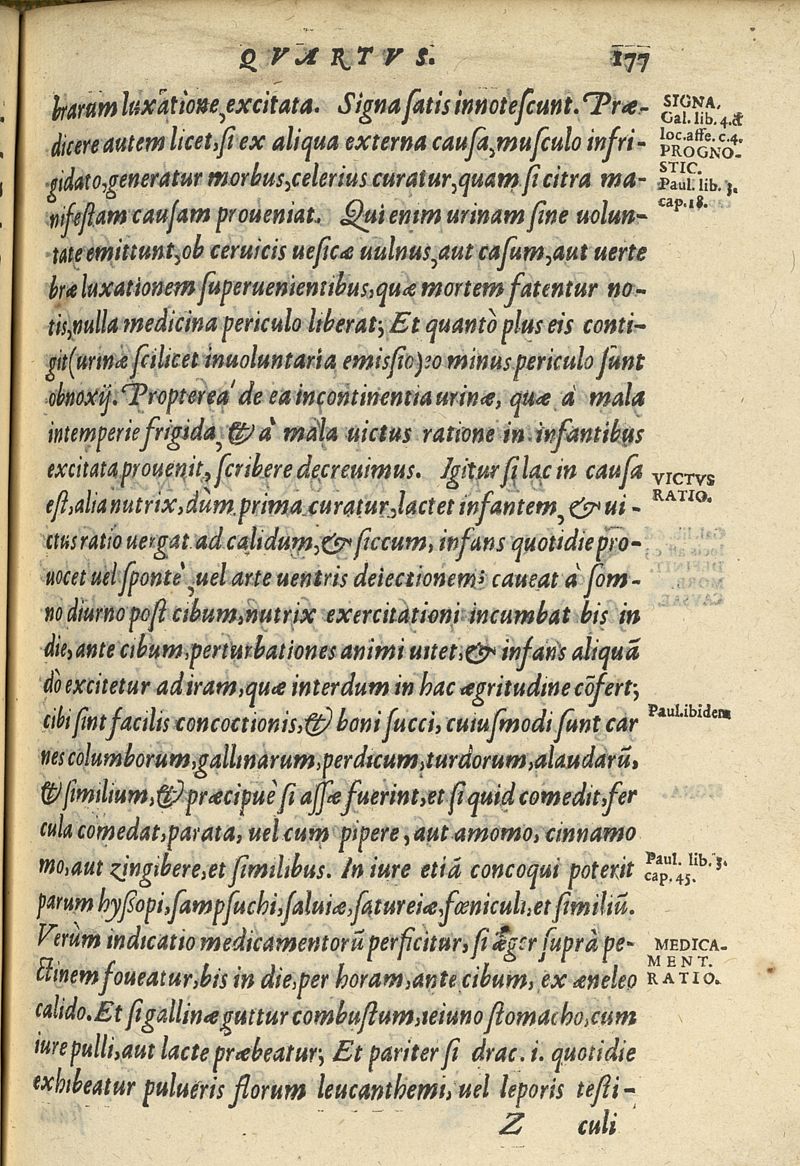 QVARTVS. 177
brarum luxatione, excitata. Signa satis innotescunt. Præ-
dicere autem licet, si ex aliqua externa causa, musculo infri-
gidato, generatur morbus, celerius curatur, quam si citra ma-
nifestam causam proueniat. Qui enim urinam sine uolun-
tate emittunt, ob ceruicis uesicæ uulnus, aut casum, aut uerte
bræ luxationem superuenientibus, quæ mortem fatentur no-
tis, nulla medicina periculo liberat; Et quantò plus eis conti-
git (urinæ scilicet inuoluntaria emissio) eo minus periculo sunt
obnoxij. Propterea de ea incontinentia urinæ, quæ à mala
intemperie frigida, & à mala uictus ratione in infantibus
excitata prouenit, scribere decreuimus. Igitur si lac in causa
est, alia nutrix, dùm prima curatur, lactet infantem, & ui-
ctus ratio uergat ad calidum, & siccum, infans quotidie pro-
uocet uel spontè, uel arte uentris deiectionem; caueat à som-
no diurno post cibum, nutrix exercitationi incumbat bis in
die, ante cibum, perturbationes animi uitet, & infans aliquã
dò excitetur ad iram, quæ interdum in hac ægritudine cõfert;
cibi sint facilis concoctionis, & boni succi, cuiusmodi sunt car
nes columborum, gallinarum, perdicum, turdorum, alaudarũ,
& similium, & præcipuè si assæ fuerint, et si quid comedit, fer
cula comedat, parata, uel cum pipere, aut amomo, cinnamo
mo, aut zingibere, et similibus. In iure etiã concoqui poterit
parum hyssopi, sampsuchi, saluiæ, satureiæ, fœniculi, et similiũ.
Verùm indicatio medicamentorũ perficitur, si æger suprà pe-
ctinem foueatur, bis in die, per horam, ante cibum, ex æneleo
calido. Et si gallinæ guttur combustum, ieiuno stomacho, cum
iure pulli, aut lacte præbeatur; Et pariter si drac. i. quotidie
exhibeatur pulueris florum leucanthemi, uel leporis testi-
Z culi
SIGNA.
Gal. lib. 4. &
loc. affe. c. 4.
PROGNO-
STIC.
Paul. lib. 3.
cap. 18.
VICTVS
RATIO.
Paul. ibidem
Paul. lib. 3.
cap. 45.
MEDICA-
MENT.
RATIO.